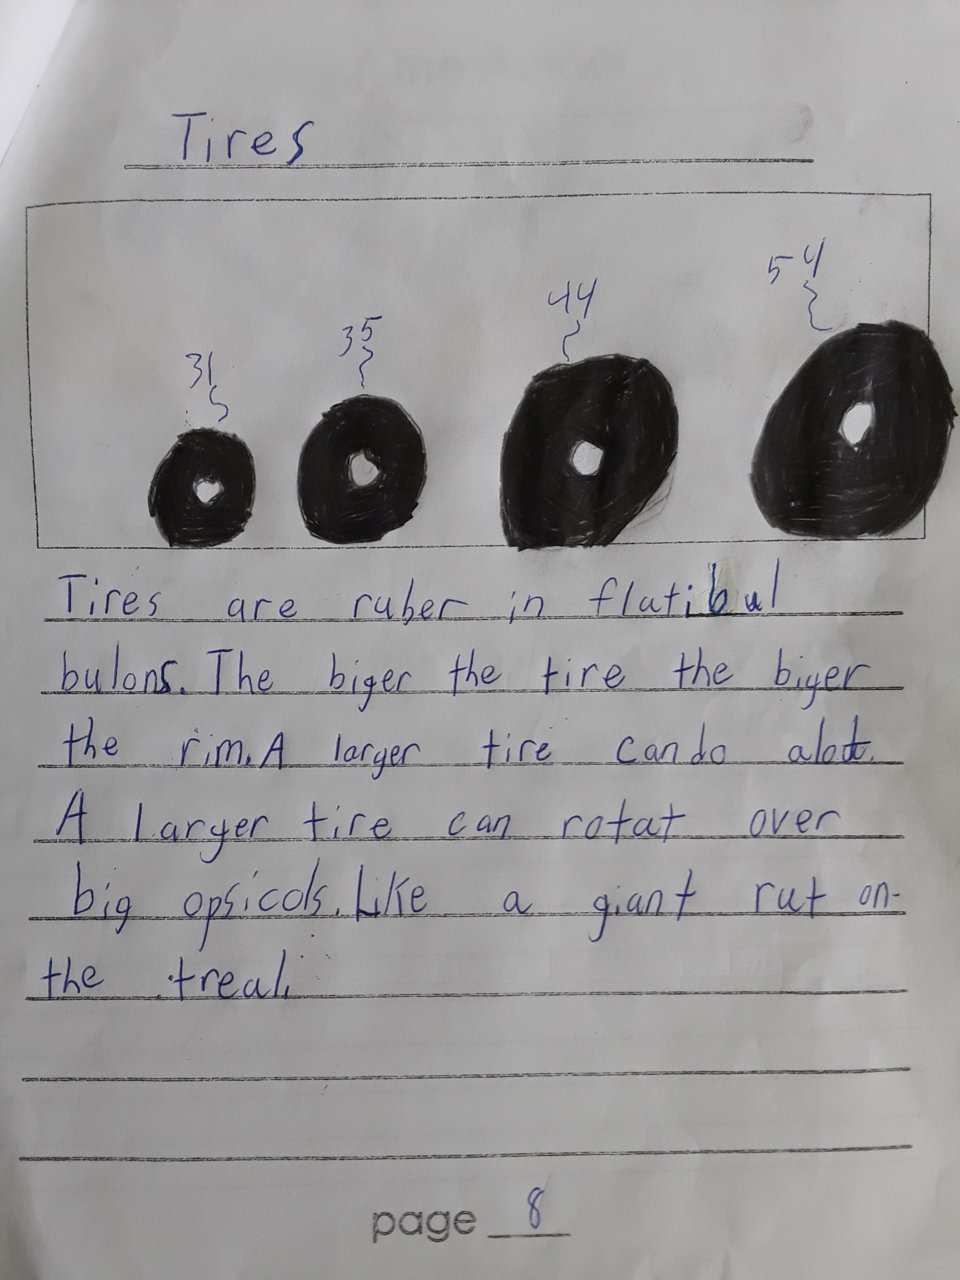 Tires
31
35
44
54
Tires are ruber in flatibul
bulons. The biger the tire the biger
the rim. A larger tire can do alot.
A larger tire can rotat over
big opsicols. Like a giant rut on-
the treal.
page 8